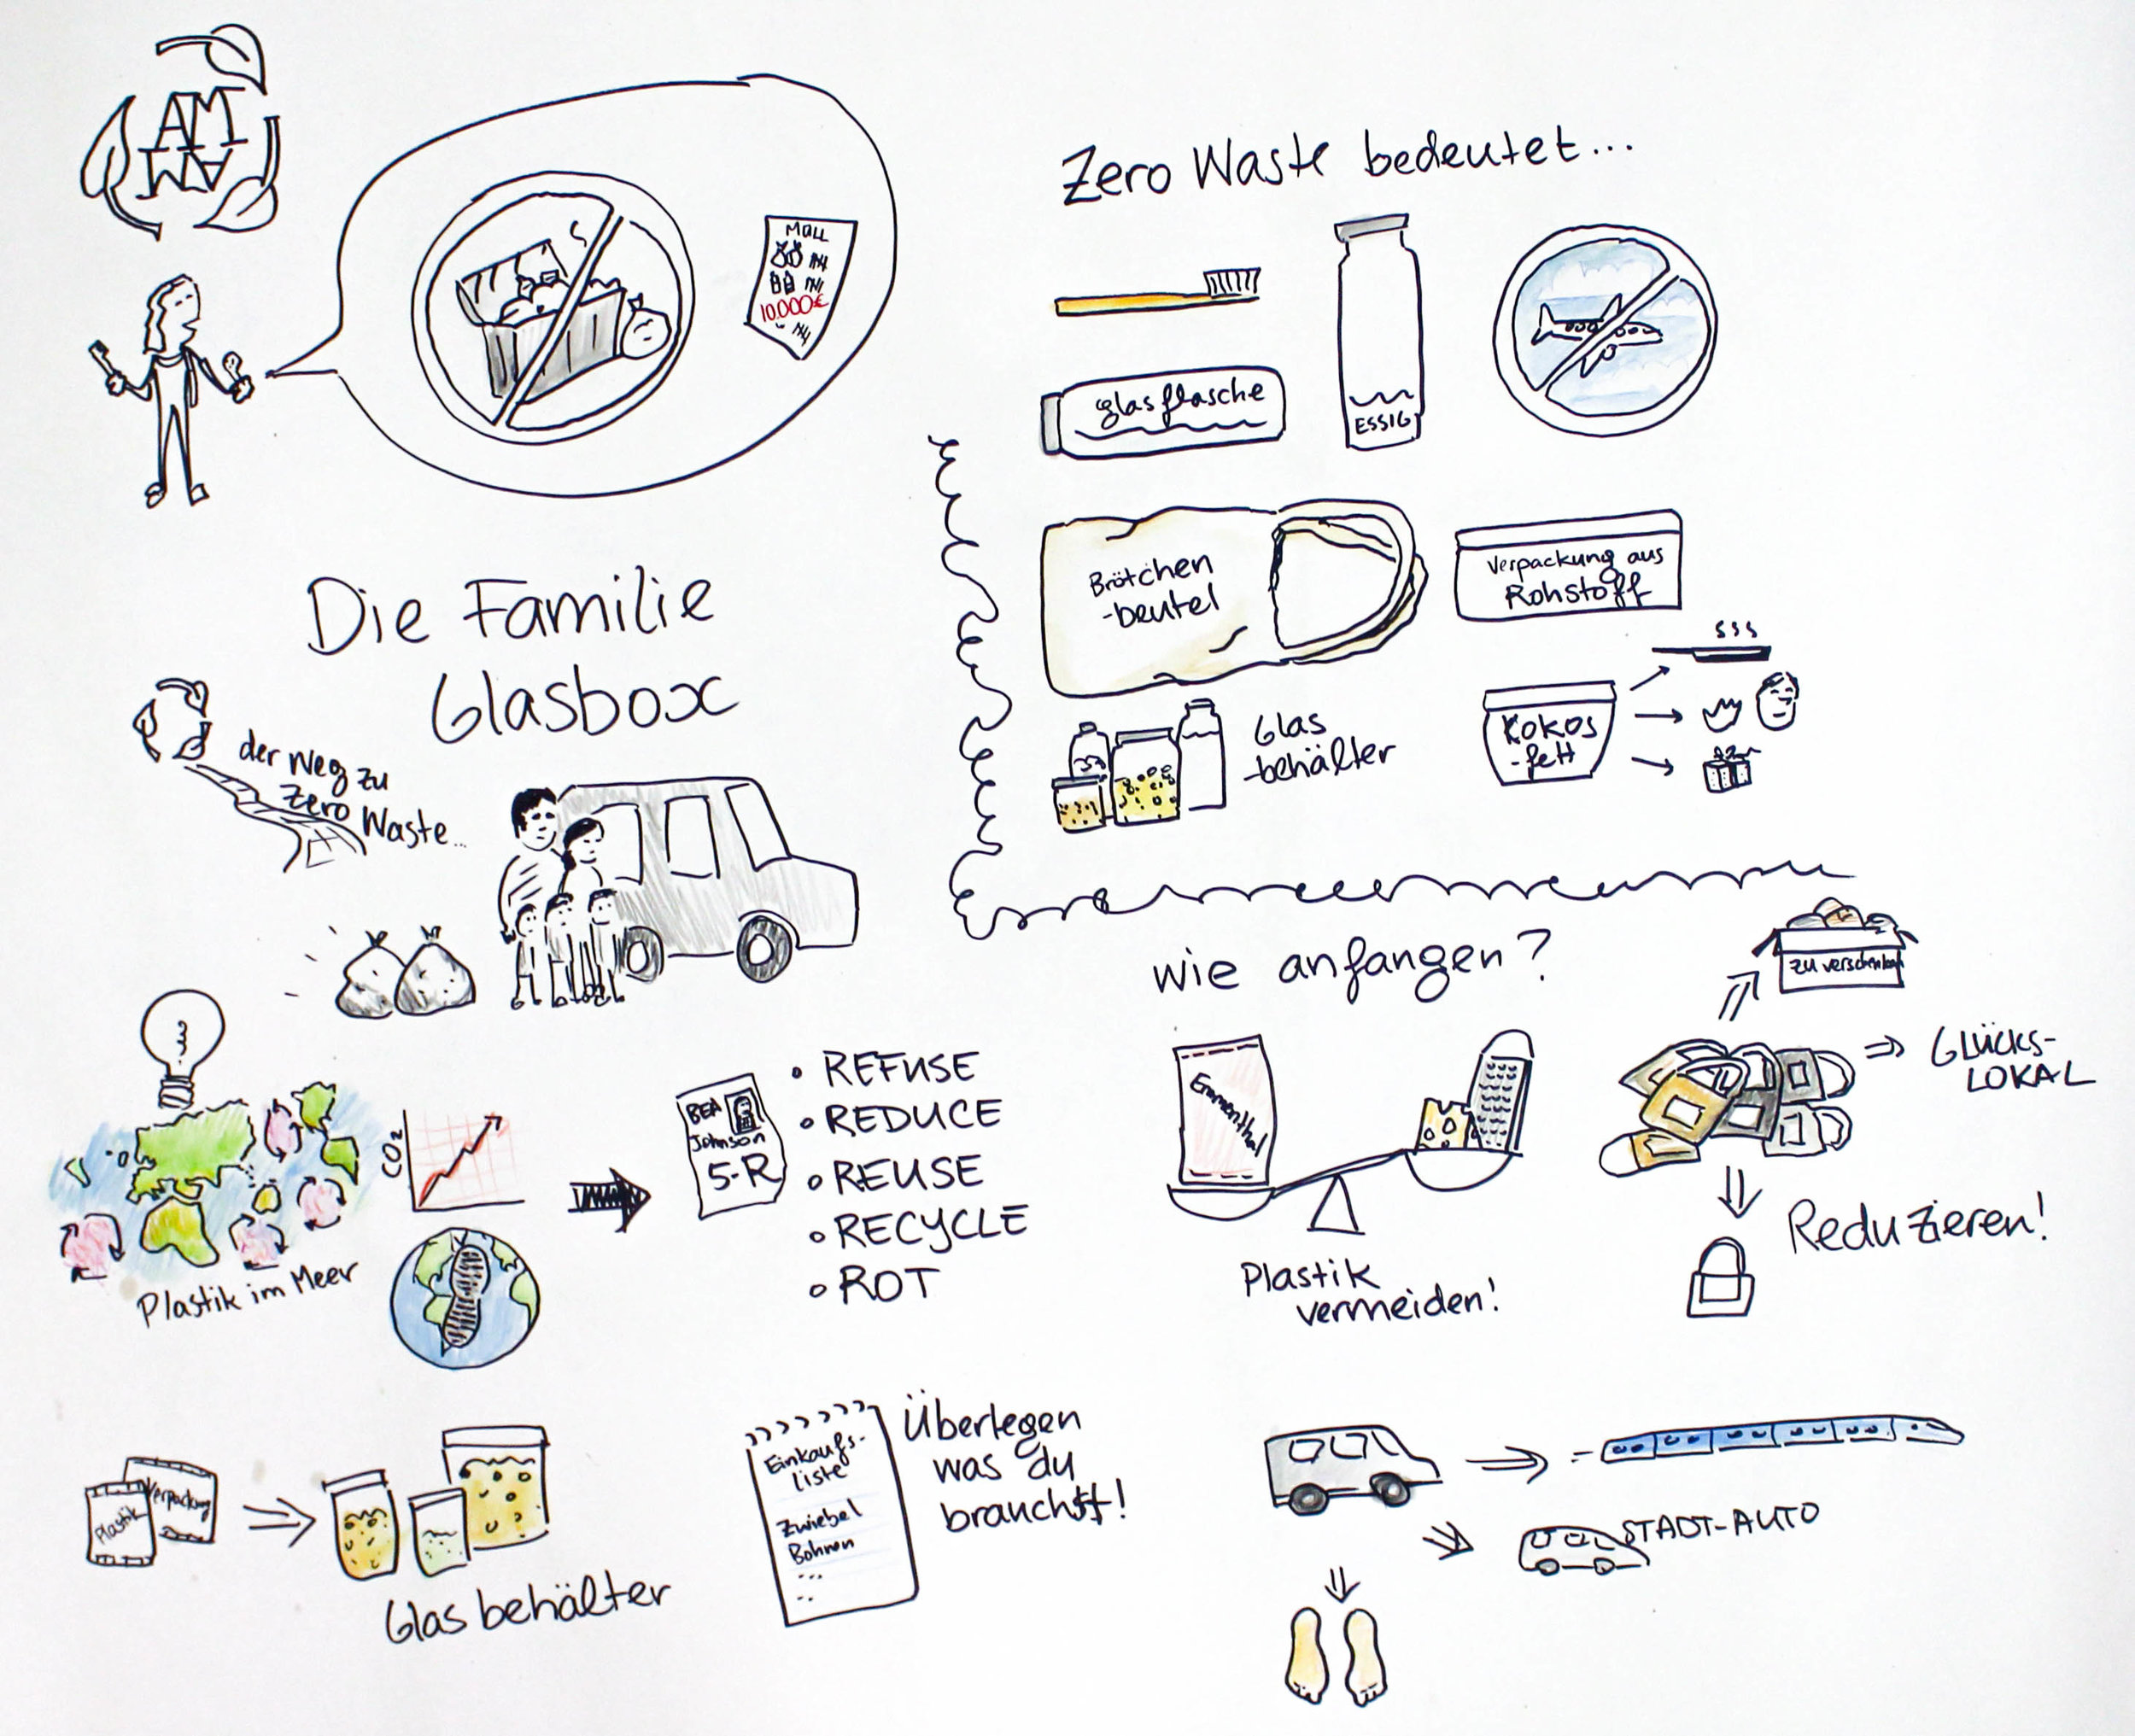 AM
MÜLL
10.000€
Die Familie
Glasbox
der Weg zu
Zero Waste...
Plastik im Meer
CO2
BEA
Johnson
5-R
• REFUSE
• REDUCE
• REUSE
• RECYCLE
• ROT
Plastik
Verpackung
Glas behälter
Einkaufs-
liste
Zwiebel
Bohnen
...
Überlegen
was du
brauchst!
Zero Waste bedeutet...
glasflasche
ESSIG
Brötchen
-beutel
Verpackung aus
Rohstoff
Glas
-behälter
Kokos
-fett
sss
wie anfangen?
Emmenthal
Plastik
vermeiden!
zu verschenken
GLÜCKS-
LOKAL
Reduzieren!
STADT-AUTO